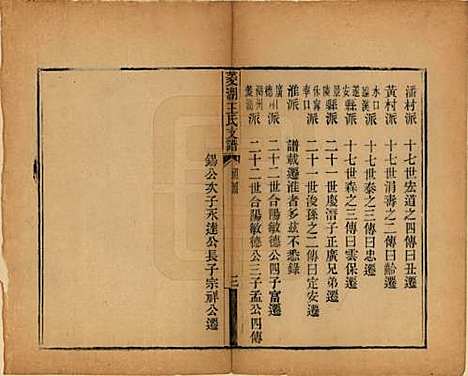 潘村派 十七世宏道之四傳曰丑遷
黃村派 十七世消壽之二傳曰齡遷
水口 派 十七世泰之三傳曰忠遷
安縣派 十七世森之三傳曰雲保遷
景縣 陵縣派 二十一世慶潛子正廣兄弟遷
休甯 率口派 二十一世後孫之二傳曰定安遷
淮派 譜載遷淮者多茲不悉錄
廣州 德州派 二十二世合陽敏德公四子富遷
湖州 派 二十二世合陽敏德公三子孟公四傳
菱湖王氏支譜
三
錫公次子永達公長子宗祥公遷